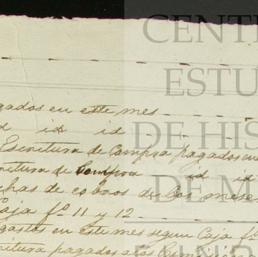 CENT
ESTU
DE HIS
DE M
gados en este mes
d id id
Escritura de Compra pagados en
critura de Compra id id
chas de cobros de los mese
Caja fº 11 y 12
gastos en este mes segun Caja fº
critura pagados a los